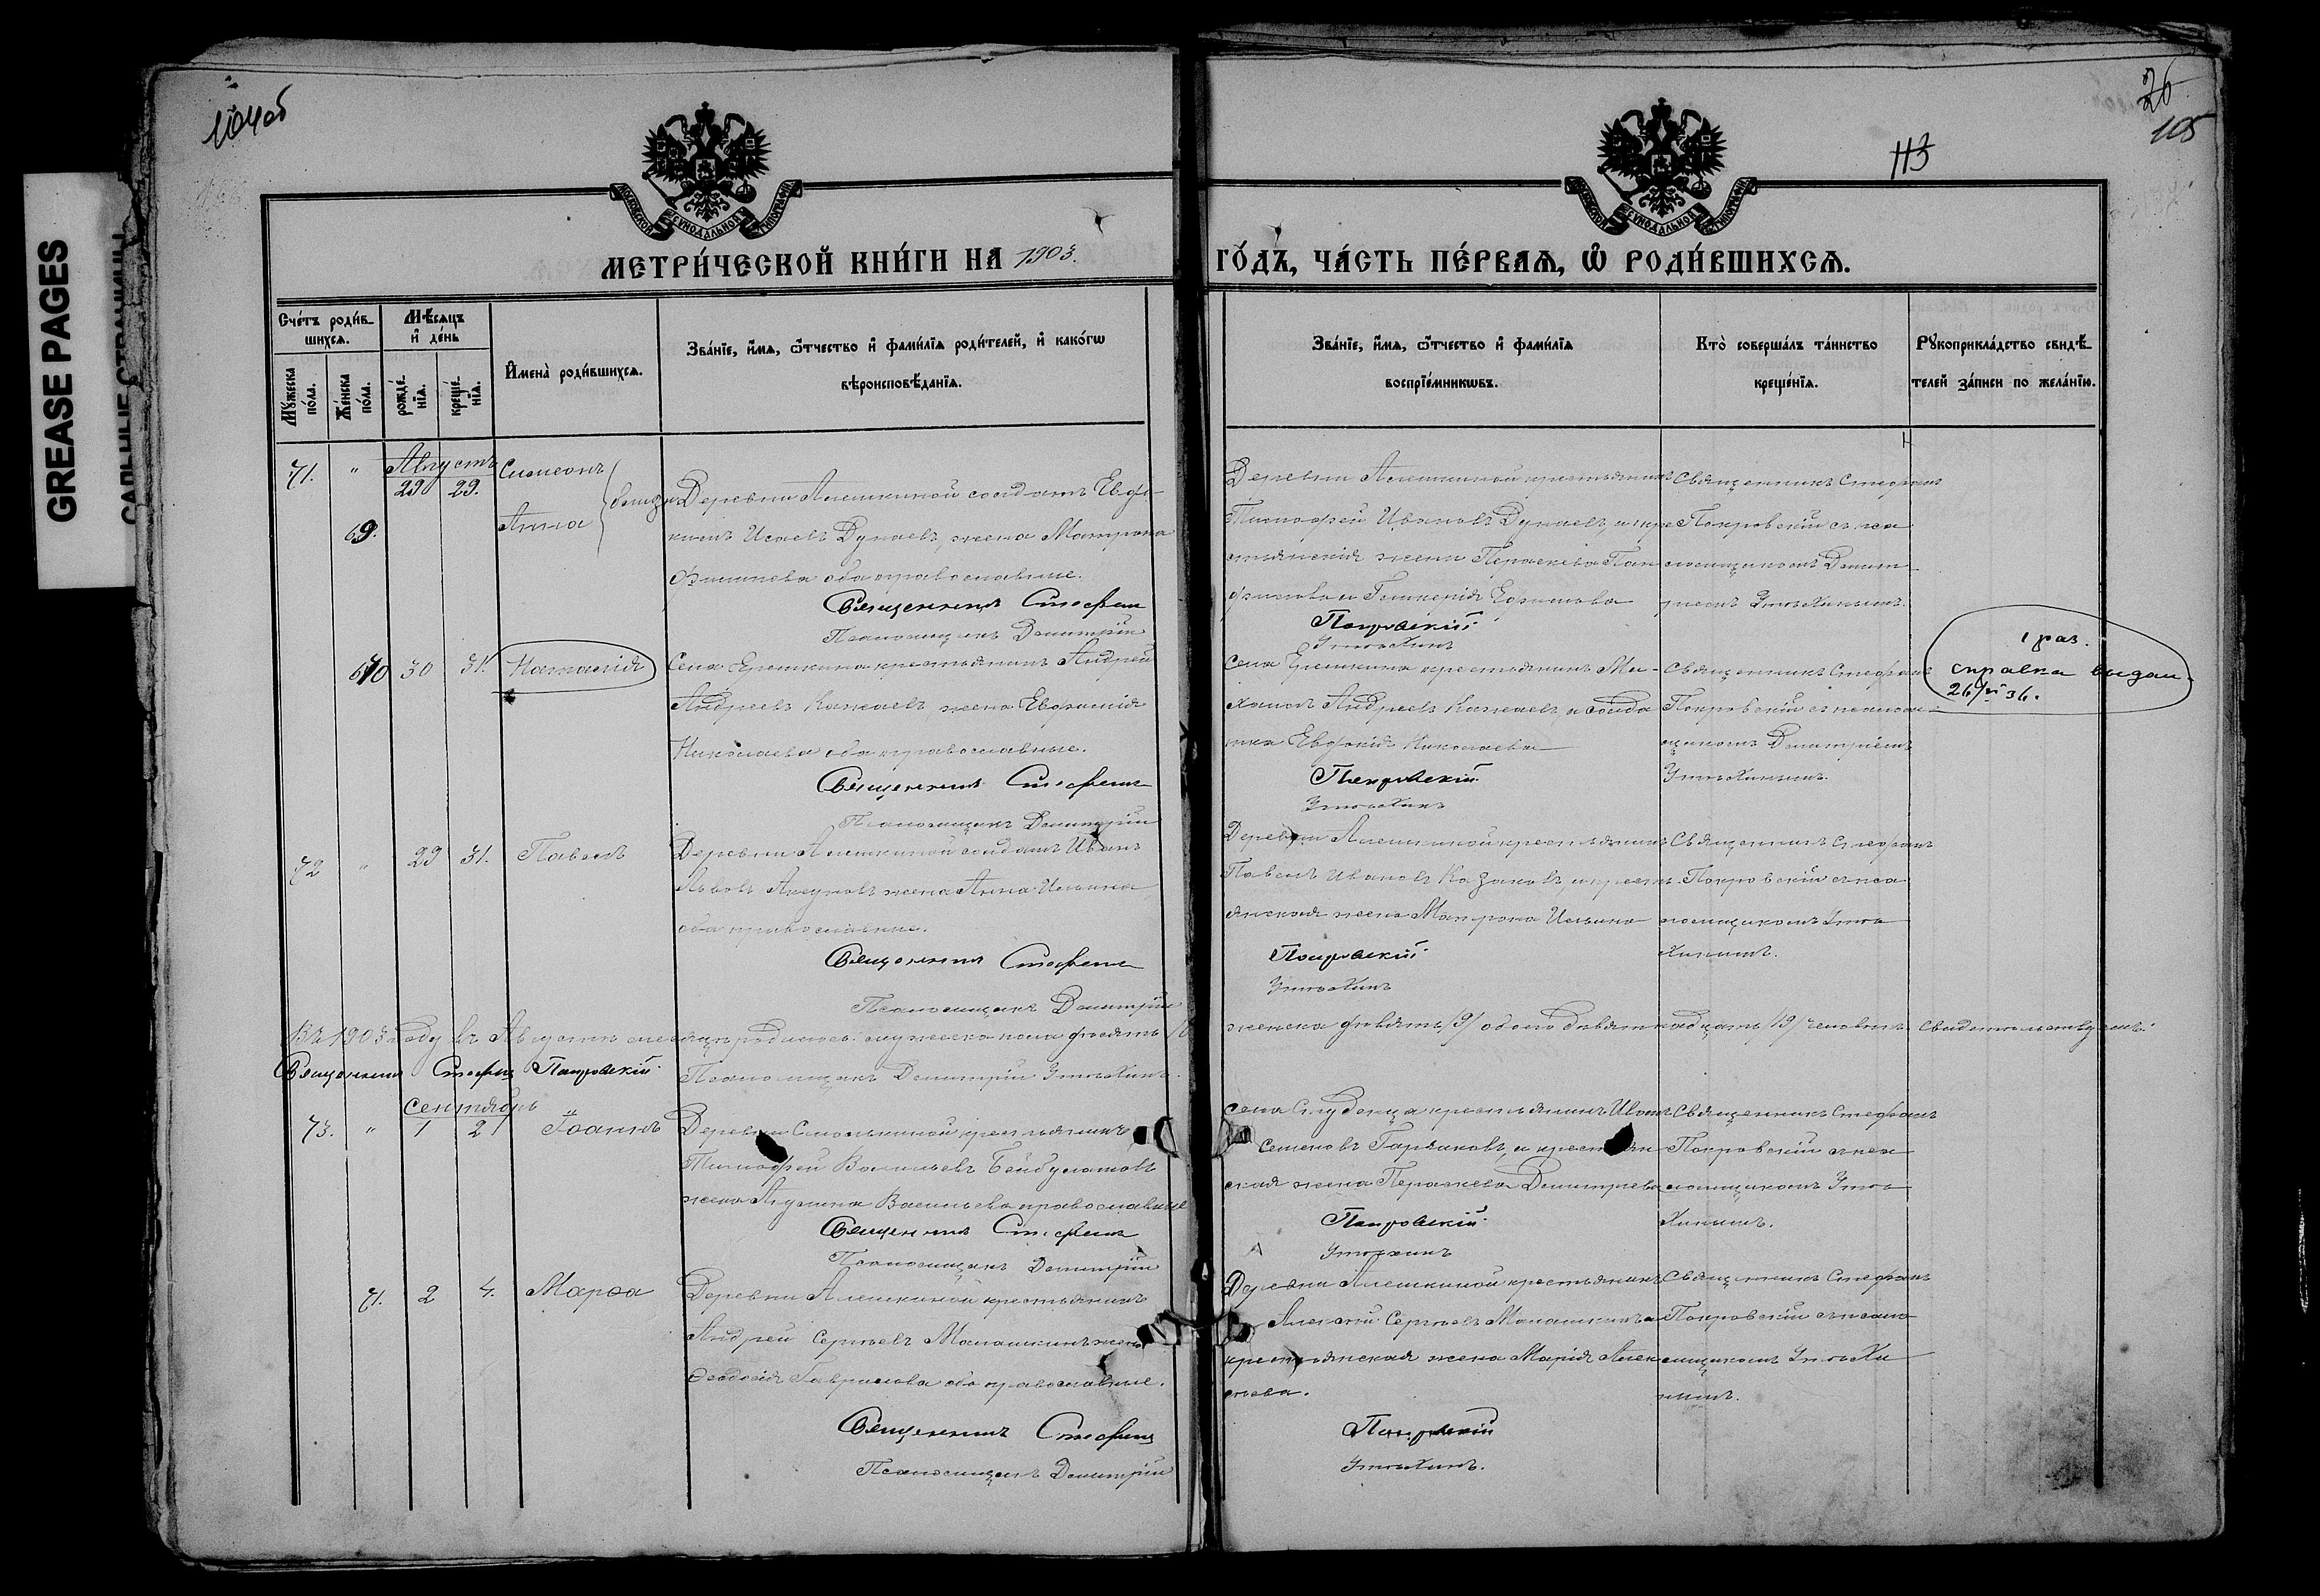 GREASE PAGES
САЛЬНЫЕ СТРАНИЦЫ
104об
26
105
113
МОСКОВСКОЙ СѴНОДАЛЬНОЙ ТИПОГРАФІИ
МОСКОВСКОЙ СѴНОДАЛЬНОЙ ТИПОГРАФІИ
МЕТРИ́ЧЕСКОЙ КНИ́ГИ НА 1903.
ГО́ДЪ, ЧА́СТЬ ПЕ́РВАѦ, Ѽ РОДИ́ВШИХСѦ.
Сче́тъ роди́в-
шихсѧ.
Мꙋ́жеска по́ла.
Же́нска по́ла.
Мѣ́сѧцъ и҆ де́нь
рожде́-нїѧ.
креще́-нїѧ.
И҆мена̀ роди́вшихсѧ.
Зва́нїе, и҆́мѧ, ѻ҆́тчество и҆ фами́лїѧ роди́телей, и҆ како́гѡ
вѣроисповѣ́данїѧ.
Зва́нїе, и҆́мѧ, ѻ҆́тчество и҆ фами́лїѧ
воспрїе́мникѡвъ.
Кто̀ соверша́лъ та́инство
креще́нїѧ.
Рꙋкоприкла́дство свидѣ́-
телей за́писи по жела́нїю.
71. " Августъ 29 29. Симеонъ
69. Анна близн.
Деревни Алешкиной солдатъ Евфи-
кимъ Исаевъ Дунаевъ, жена Матрона
Филипова оба православные.
Священникъ Стефан
Псаломщикъ Димитрій
Деревни Алешкиной крестьянинъ
Тимофей Ивановъ Дунаевъ, и кре
стьянскія жены Параскева Пан
филова и Гликерія Ефимова
Покровскій
Утѣхинъ
Священникъ Стефанъ
Покровскій съ пса
ломщикомъ Димит
ріемъ Утѣхинымъ.
70 30 31. Наталія
Села Ерешкина крестьянинъ Андрей
Андреевъ Кажаевъ жена Евфимія
Николаева оба православные.
Священникъ Стефан
Псаломщикъ Димитрій
Села Ерешкина крестьянинъ Ми-
хаилъ Андреевъ Кажаевъ и солда
тка Евфимія Николаева
Покровскій
Утѣхинъ
Священникъ Стефанъ
Покровскій съ псалом
щикомъ Димитріемъ
Утѣхинымъ.
1 раз.
справка выдан.
26/VI 36.
72 " 29 31. Павелъ
Деревни Алешкиной солдатъ Иванъ
Львовъ жена Анна Ильина
оба православные.
Священникъ Стефан
Псаломщикъ Димитрій
Деревни Алешкиной крестьянинъ
Павелъ Ивановъ Казаковъ, и кресть
янская жена Матрона Ильина
Покровскій
Утѣхинъ
Священникъ Стефанъ
Покровскій съ пса
ломщикомъ Утѣ
хинымъ.
Въ 1903 году въ Августѣ мѣсяцѣ родилось: мужеска пола десять /10
женска девять /9/ обоего девятнадцать /19/ человѣкъ. Свидѣтельствуемъ:
Священникъ Стефан Покровскій Псаломщикъ Димитрій Утѣхинъ.
73. " Сентябрь 1 2 Іоаннъ
Деревни крестьянинъ
Тимофей Васильевъ Бейбулатовъ
жена Акулина Васильева православные
Священникъ Стефан
Псаломщикъ Димитрій
Села Студенца крестьянинъ Иванъ
Семеновъ Горбаковъ, и крестьян
ская жена Параскева Димитріева
Покровскій
Утѣхинъ
Священникъ Стефанъ
Покровскій съ пса
ломщикомъ Утѣ
хинымъ.
71. 2 4. Марѳа
Деревни Алешкиной крестьянинъ
Андрей Сергѣевъ Мамашкинъ жена
Ѳеодосія Гаврилова оба православные.
Священникъ Стефан
Псаломщикъ Димитрій
Деревни Алешкиной крестьянинъ
Алексѣй Сергѣевъ Мамашкинъ и
крестьянская жена Марія Алек
сѣева.
Покровскій
Утѣхинъ.
Священникъ Стефанъ
Покровскій съ псало
мщикомъ Утѣхи
нымъ.